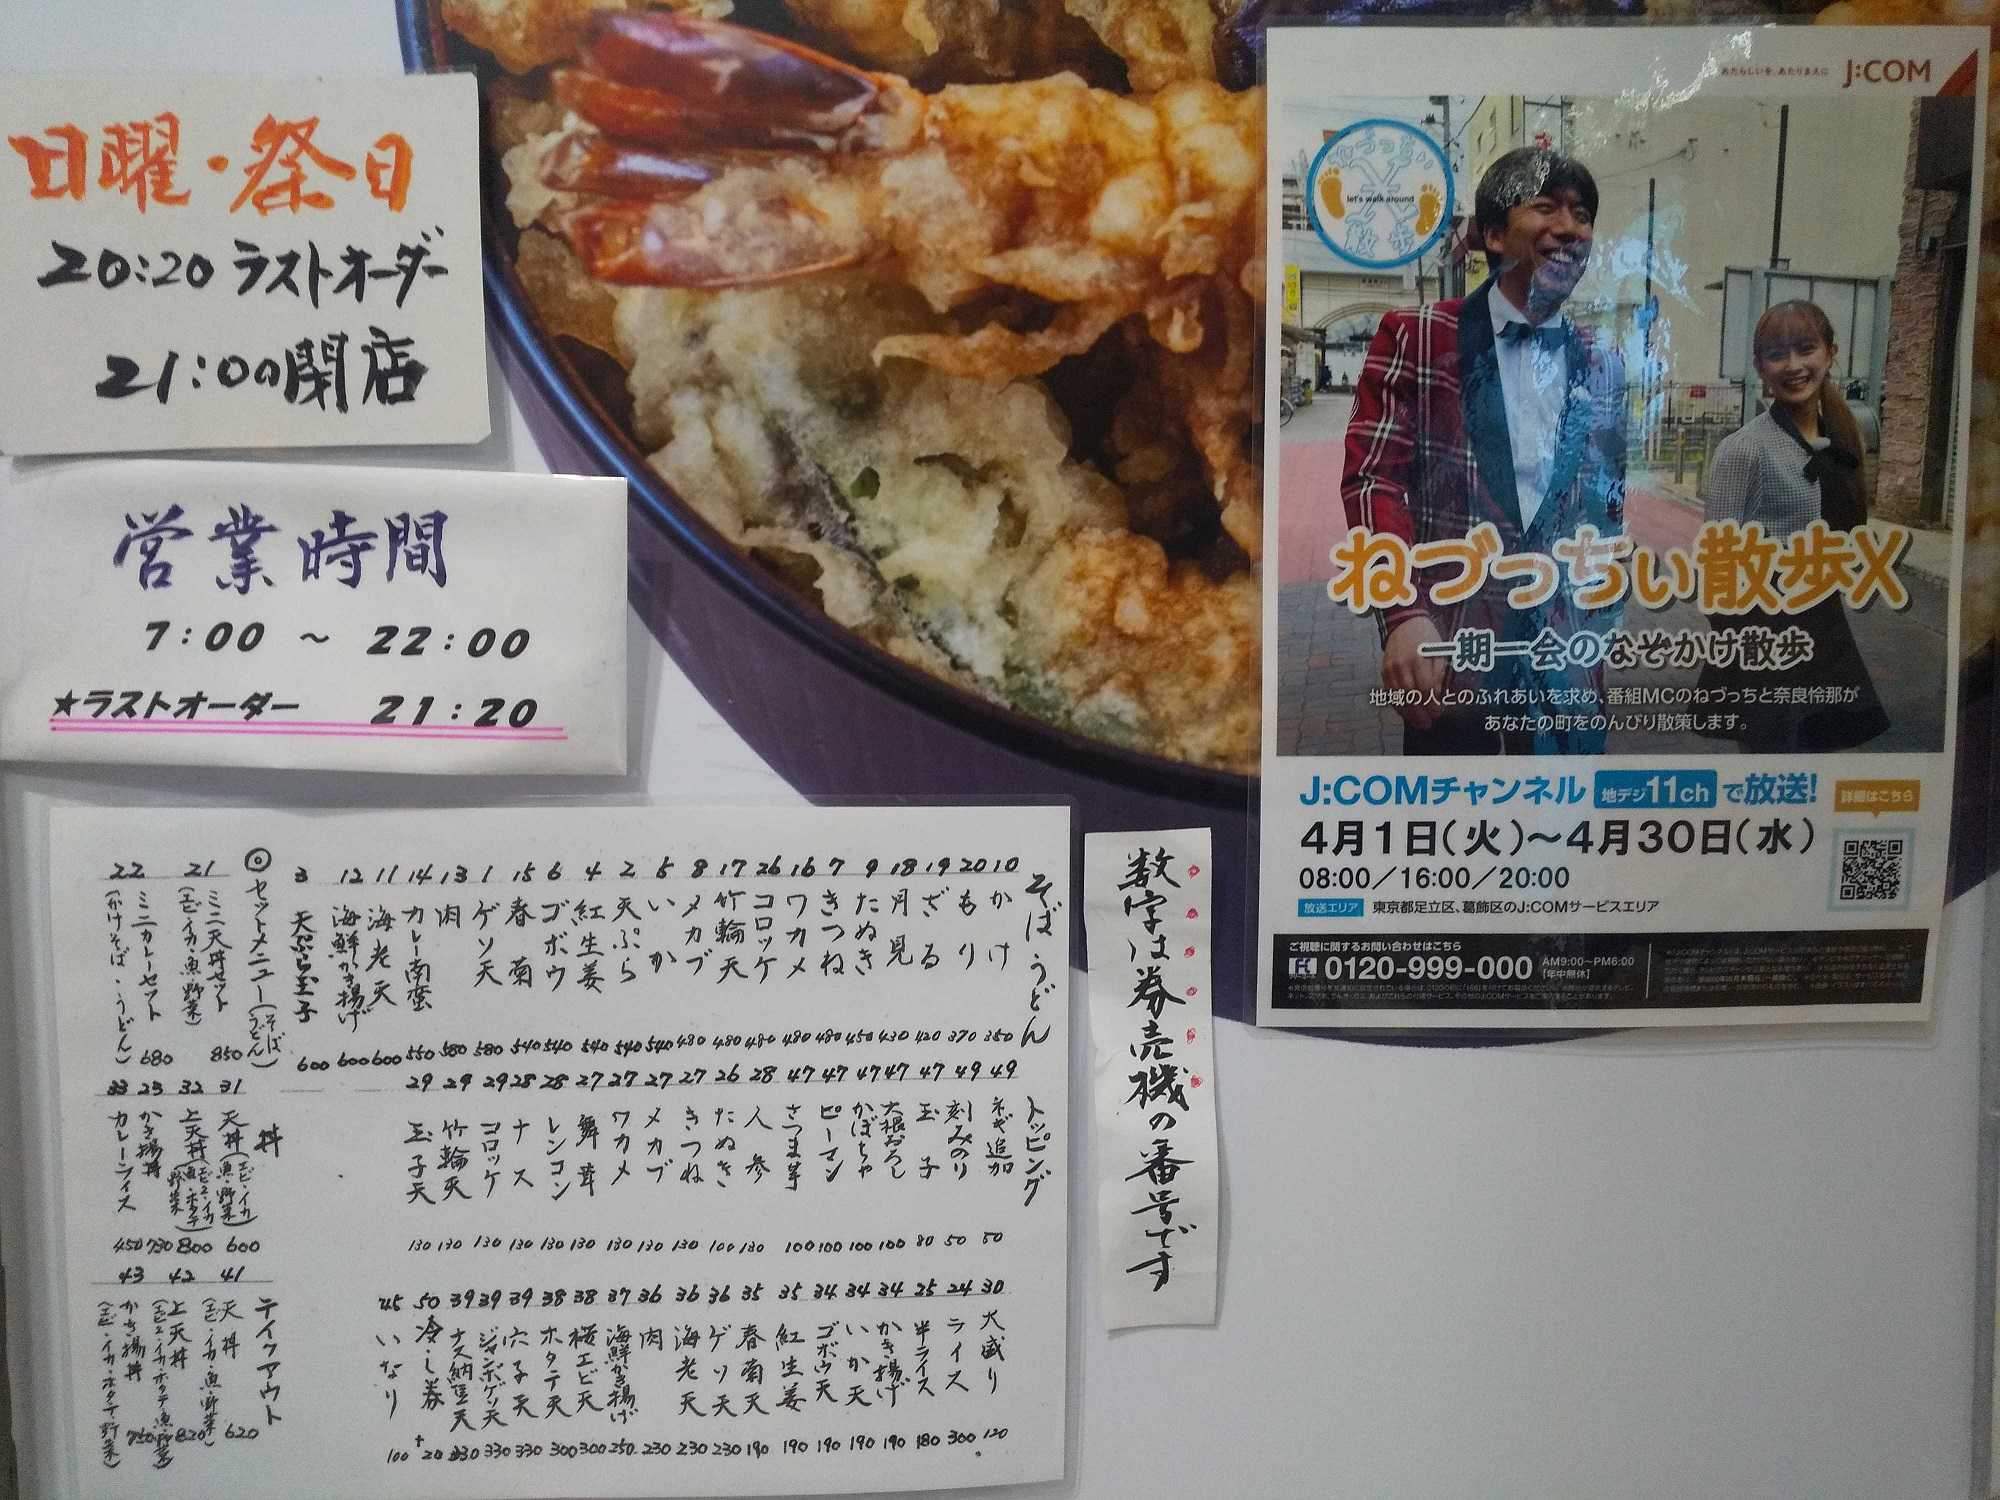 日曜・祭日
20:20 ラストオーダー
21:00閉店
営業時間
7:00 ～ 22:00
★ラストオーダー 21:20
そば うどん
10 かけ 350
20 もり 370
19 ざる 420
18 月見 430
9 たぬき 450
7 きつね 480
16 ワカメ 480
26 コロッケ 480
17 竹輪天 480
8 メカブ 480
5 いか 540
2 天ぷら 540
4 紅生姜 540
6 ゴボウ 540
15 春菊 540
1 ゲソ天 580
13 肉 580
14 カレー南蛮 550
11 海老天 600
12 海鮮かき揚げ 600
3 天ぷら玉子 600
◎セットメニュー(そば うどん)
21 ミニ天丼セット 850
(エビ・イカ・魚・野菜)
22 ミニカレーセット 680
(かけそば・うどん)
トッピング
49 ネギ追加 50
49 刻みのり 50
47 玉子 80
47 大根おろし 100
47 かぼちゃ 100
47 ピーマン 100
47 さつま芋 100
28 人参 130
26 たぬき 100
27 きつね 130
27 メカブ 130
27 ワカメ 130
27 舞茸 130
28 レンコン 130
28 ナス 130
29 コロッケ 130
29 竹輪天 130
29 玉子天 130
丼
31 天丼(エビ・イカ 魚・野菜) 600
32 上天丼(エビ2・イカ 魚・ホタテ 野菜) 800
23 かき揚丼 730
33 カレーライス 450
30 大盛り 120
24 ライス 300
25 半ライス 180
34 かき揚げ 190
34 いか天 190
34 ゴボウ天 190
35 紅生姜 190
35 春菊天 190
36 ゲソ天 230
36 海老天 230
36 肉 230
37 海鮮かき揚げ 250
38 桜エビ天 300
38 ホタテ天 300
39 穴子天 330
39 ジャンボゲソ天 330
39 ナス納豆天 330
50 冷し券 +20
45 いなり 100
テイクアウト
41 天丼 620
(エビ・イカ・魚・野菜)
42 上天丼 820
(エビ2・イカ・ホタテ・魚・野菜)
43 かき揚丼 750
(エビ・イカ・ホタテ・野菜)
数字は券売機の番号です
あたらしいを、あたりまえに J:COM
ねづっちぃ
X
let's walk around
散歩
ねづっちぃ散歩X
一期一会のなぞかけ散歩
地域の人とのふれあいを求め、番組MCのねづっちと奈良怜那が
あなたの町をのんびり散策します。
J:COMチャンネル 地デジ11ch で放送!
詳細はこちら
4月1日(火)～4月30日(水)
08:00／16:00／20:00
放送エリア 東京都足立区、葛飾区のJ:COMサービスエリア
ご視聴に関するお問い合わせはこちら
0120-999-000 AM9:00～PM6:00
【年中無休】